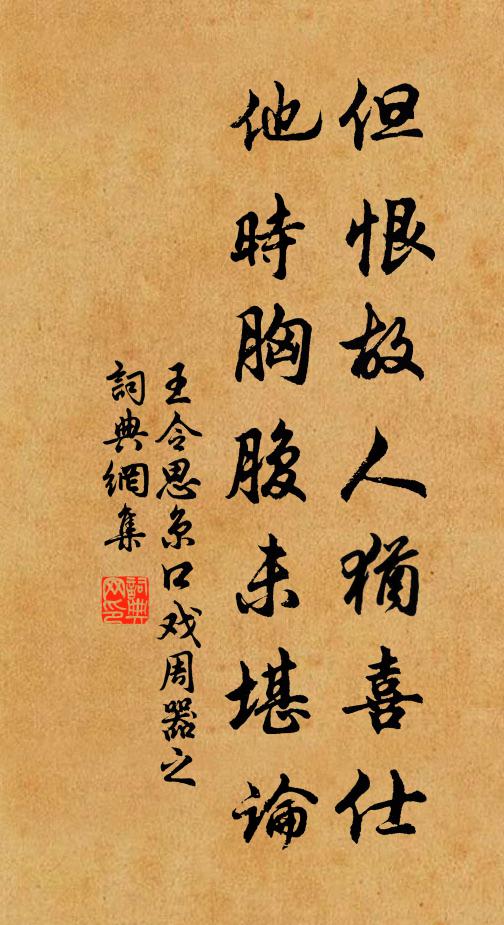 但恨故人猶喜仕
他時胸腹未堪論
王令思京口戏周器之
詞典網集
詞典网印